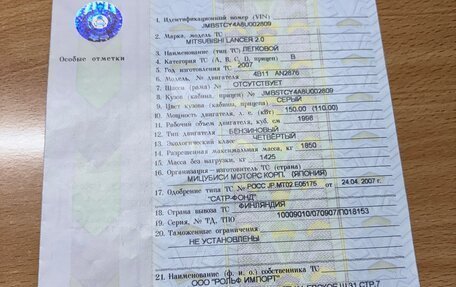 Особые отметки
1. Идентификационный номер (VIN) JMBSTCY4A8U002809
2. Марка, модель ТС MITSUBISHI LANCER 2.0
3. Наименование (тип ТС) ЛЕГКОВОЙ
4. Категория ТС (A, B, C, D, прицеп) B
5. Год изготовления ТС 2007
6. Модель, № двигателя 4B11 AN2876
7. Шасси (рама) № ОТСУТСТВУЕТ
8. Кузов (кабина, прицеп) № JMBSTCY4A8U002809
9. Цвет кузова (кабины, прицепа) СЕРЫЙ
10. Мощность двигателя, л. с. (кВт) 150.00 (110.00)
11. Рабочий объем двигателя, куб. см 1998
12. Тип двигателя БЕНЗИНОВЫЙ
13. Экологический класс ЧЕТВЕРТЫЙ
14. Разрешенная максимальная масса, кг 1850
15. Масса без нагрузки, кг 1425
16. Организация – изготовитель ТС (страна)
МИЦУБИСИ МОТОРС КОРП. (ЯПОНИЯ)
17. Одобрение типа ТС № РОСС JP.MT02.E05175 от 24.04. 2007 г.
"САТР-ФОНД"
18. Страна вывоза ТС ФИНЛЯНДИЯ
19. Серия, № ТД, ТПО 10009010/070907/П018153
20. Таможенные ограничения
НЕ УСТАНОВЛЕНЫ
21. Наименование (ф. и. о.) собственника ТС
ООО "РОЛЬФ ИМПОРТ"
Ш.31 СТР.7